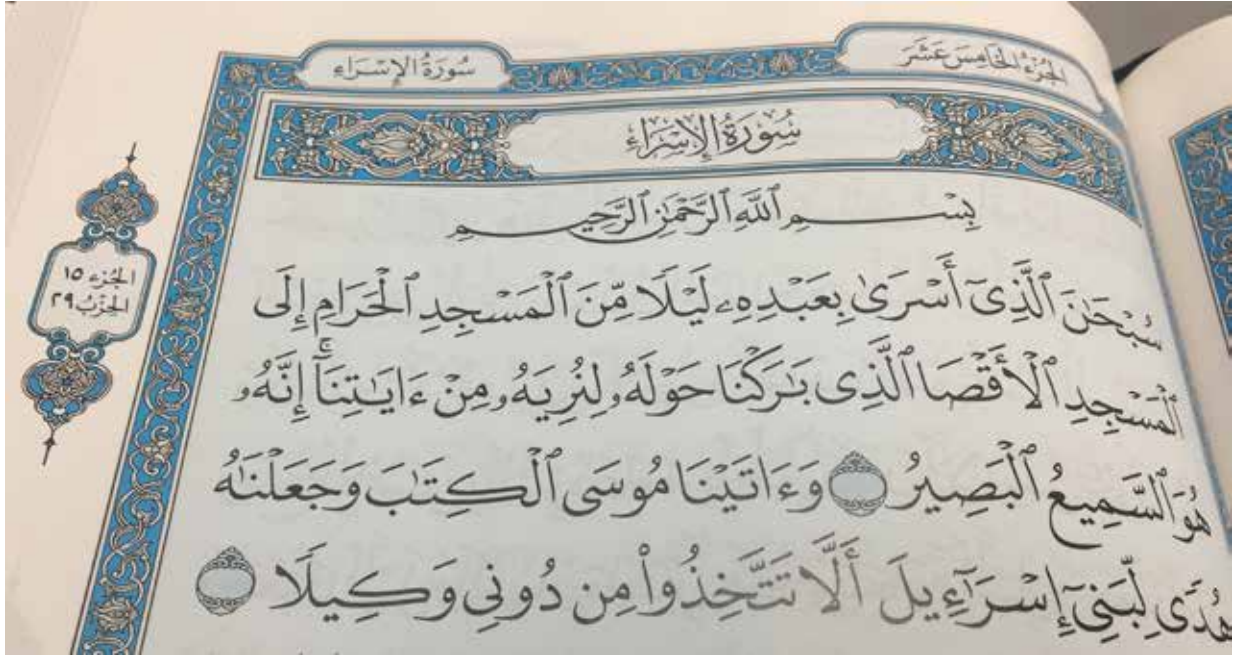 الجزء الخامس عشر
سُورَةُ الإِسْرَاءِ
سُورَةُ الإِسْرَاءِ
بِسْمِ ٱللَّهِ ٱلرَّحْمَٰنِ ٱلرَّحِيمِ
سُبْحَٰنَ ٱلَّذِىٓ أَسْرَىٰ بِعَبْدِهِۦ لَيْلًا مِّنَ ٱلْمَسْجِدِ ٱلْحَرَامِ إِلَى
ٱلْمَسْجِدِ ٱلْأَقْصَا ٱلَّذِى بَٰرَكْنَا حَوْلَهُۥ لِنُرِيَهُۥ مِنْ ءَايَٰتِنَآ ۚ إِنَّهُۥ
هُوَ ٱلسَّمِيعُ ٱلْبَصِيرُ وَءَاتَيْنَا مُوسَى ٱلْكِتَٰبَ وَجَعَلْنَٰهُ
هُدًى لِّبَنِىٓ إِسْرَٰٓءِيلَ أَلَّا تَتَّخِذُوا۟ مِن دُونِى وَكِيلًا
الجزء ١٥
الحزب ٢٩